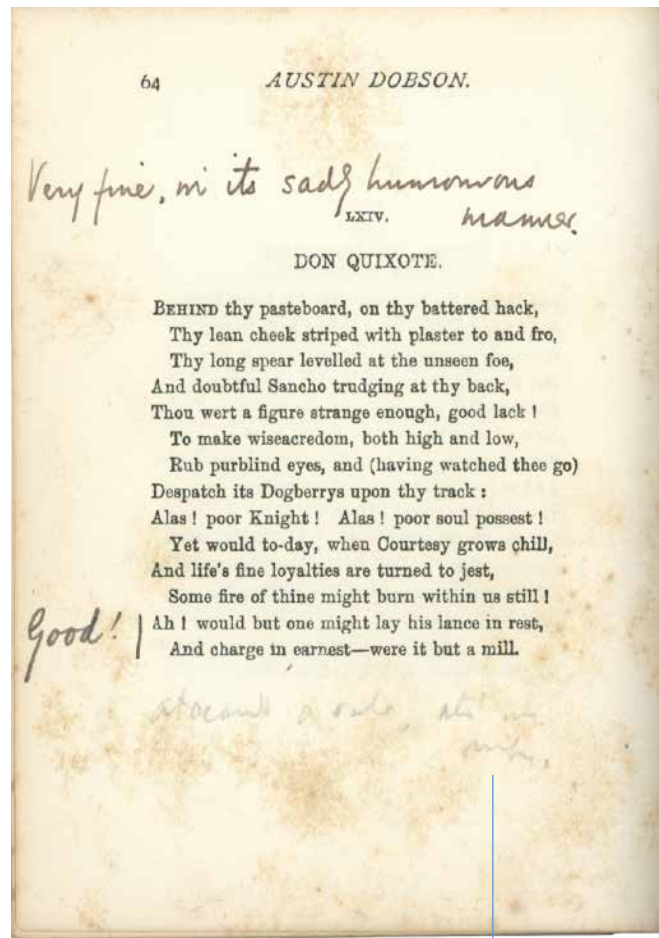 64 AUSTIN DOBSON.
Very fine, in its sadly humourous
manner.
LXIV.
DON QUIXOTE.
BEHIND thy pasteboard, on thy battered hack,
Thy lean cheek striped with plaster to and fro,
Thy long spear levelled at the unseen foe,
And doubtful Sancho trudging at thy back,
Thou wert a figure strange enough, good lack !
To make wiseacredom, both high and low,
Rub purblind eyes, and (having watched thee go)
Despatch its Dogberrys upon thy track :
Alas ! poor Knight ! Alas ! poor soul possest !
Yet would to-day, when Courtesy grows chill,
And life's fine loyalties are turned to jest,
Some fire of thine might burn within us still !
Good! Ah ! would but one might lay his lance in rest,
And charge in earnest—were it but a mill.